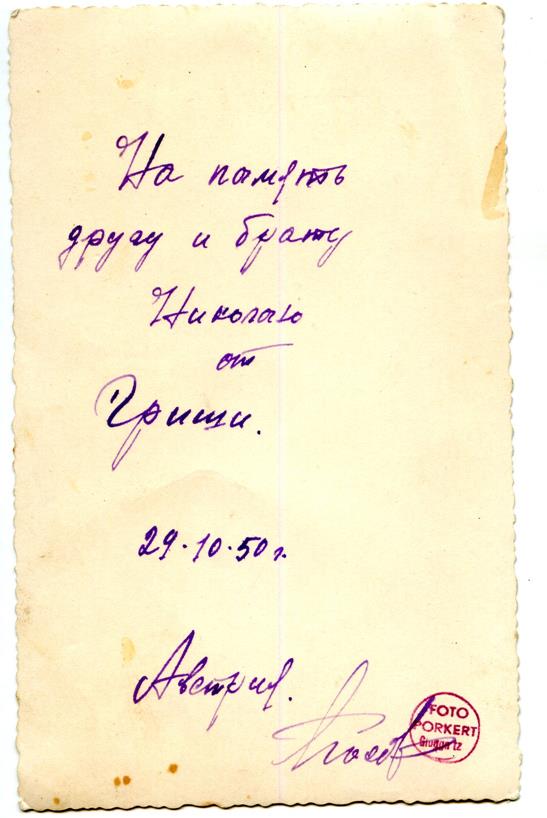 На память
другу и брату
Николаю
от
Гриши.
29.10.50 г.
Австрия.
FOTO
PORKERT